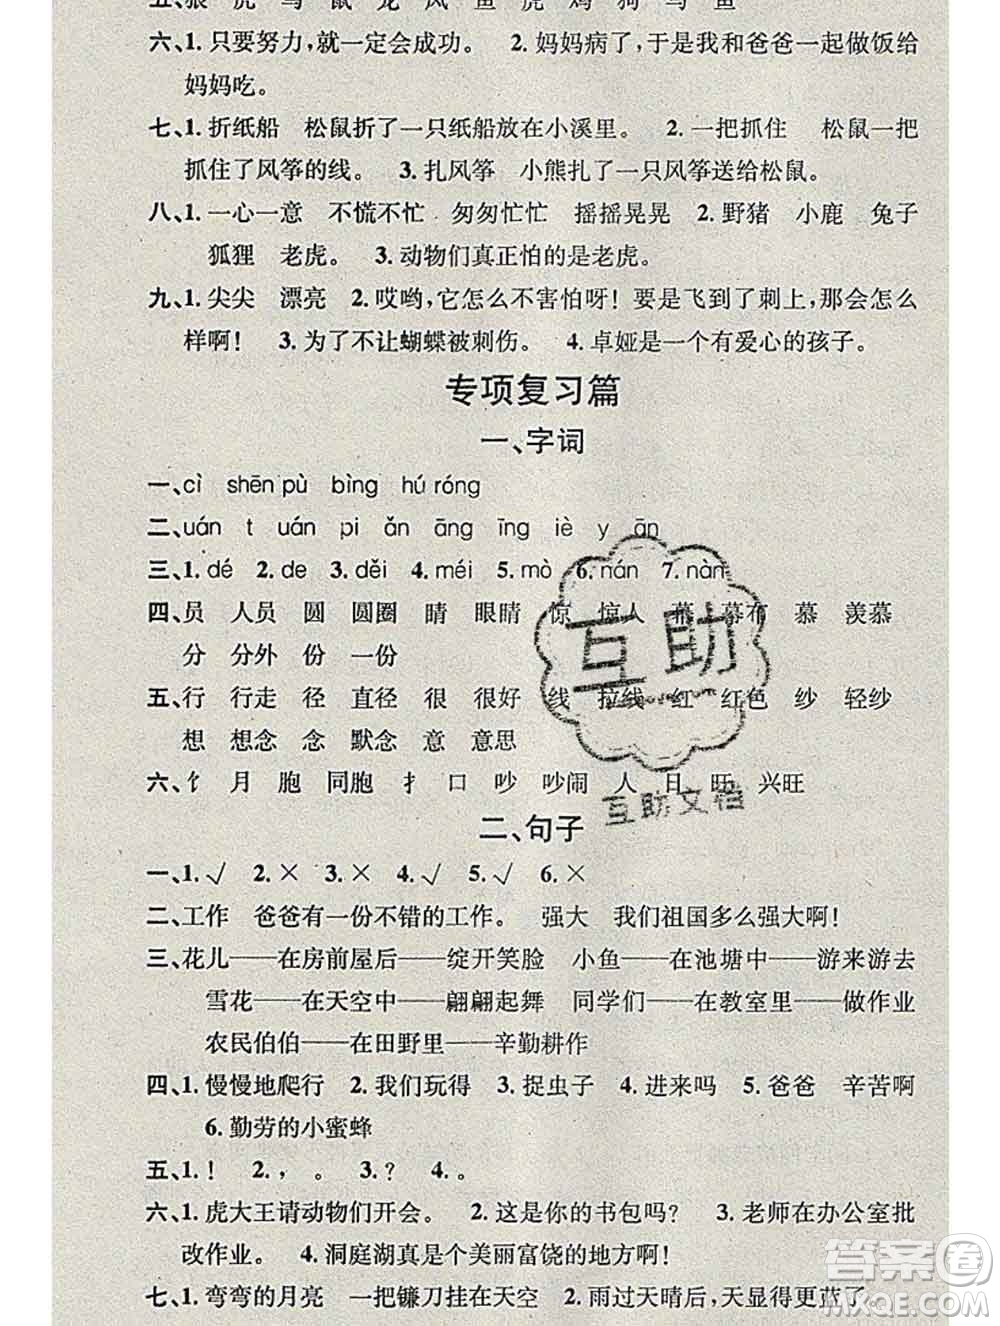 五、狼 虎 马 鼠 龙 风 鱼 虎 鸡 狗 马 鱼
六、1. 只要努力,就一定会成功。 2. 妈妈病了,于是我和爸爸一起做饭给
妈妈吃。
七、1. 折纸船 松鼠折了一只纸船放在小溪里。 2. 一把抓住 松鼠一把
抓住了风筝的线。 3. 扎风筝 小熊扎了一只风筝送给松鼠。
八、1. 一心一意 不慌不忙 匆匆忙忙 摇摇晃晃 2. 野猪 小鹿 兔子
狐狸 老虎。 3. 动物们真正怕的是老虎。
九、1. 尖尖 漂亮 2. 哎哟,它怎么不害怕呀!要是飞到了刺上,那会怎么
样啊! 3. 为了不让蝴蝶被刺伤。 4. 卓娅是一个有爱心的孩子。
专项复习篇
一、字词
一、cì shēn pù bìng hú róng
二、uán t uán pi ǎn āng īng iè y ān
三、1. dé 2. de 3. děi 4. méi 5. mò 6. nán 7. nàn
四、员 人员 圆 圆圈 睛 眼睛 惊 惊人 幕 幕布 慕 羡慕
分 分外 份 一份
五、行 行走 径 直径 很 很好 线 拉线 红 红色 纱 轻纱
想 想念 念 默念 意 意思
六、饣 月 胞 同胞 扌 口 吵 吵闹 人 日 旺 兴旺
互助
互助文档
二、句子
一、1. √ 2. × 3. × 4. √ 5. √ 6. ×
二、工作 爸爸有一份不错的工作。 强大 我们祖国多么强大啊!
三、花儿——在房前屋后——绽开笑脸 小鱼——在池塘中——游来游去
雪花——在天空中——翩翩起舞 同学们——在教室里——做作业
农民伯伯——在田野里——辛勤耕作
四、1. 慢慢地爬行 2. 我们玩得 3. 捉虫子 4. 进来吗 5. 爸爸 辛苦啊
6. 勤劳的小蜜蜂
五、1. ! 2. , 。 3. ? 4. 。
六、1. 虎大王请动物们开会。 2. 这是你的书包吗? 3. 老师在办公室批
改作业。 4. 洞庭湖真是个美丽富饶的地方啊!
七、1. 弯弯的月亮 一把镰刀挂在天空 2. 雨过天晴后,天显得更蓝了。
答案圈
MXQE.COM